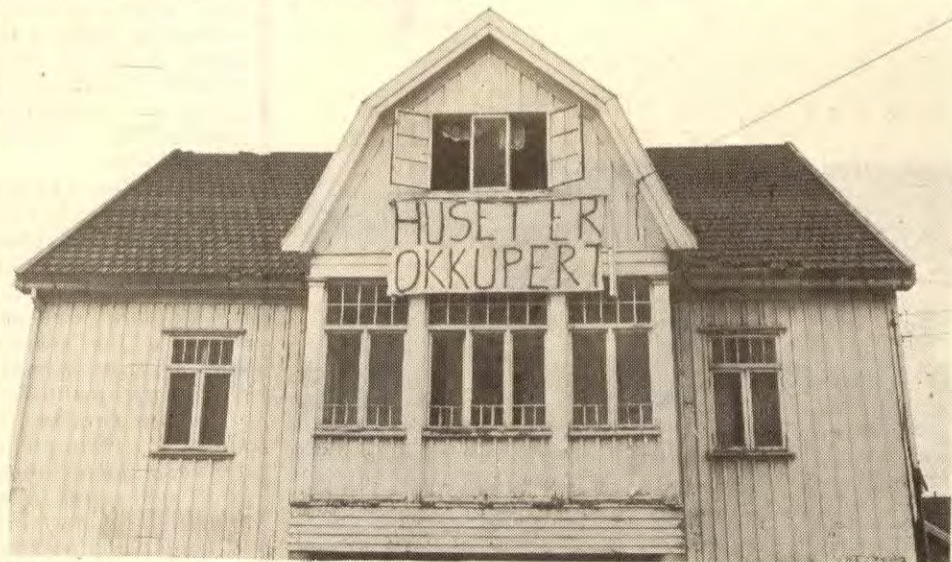 HUSET ER
OKKUPERT